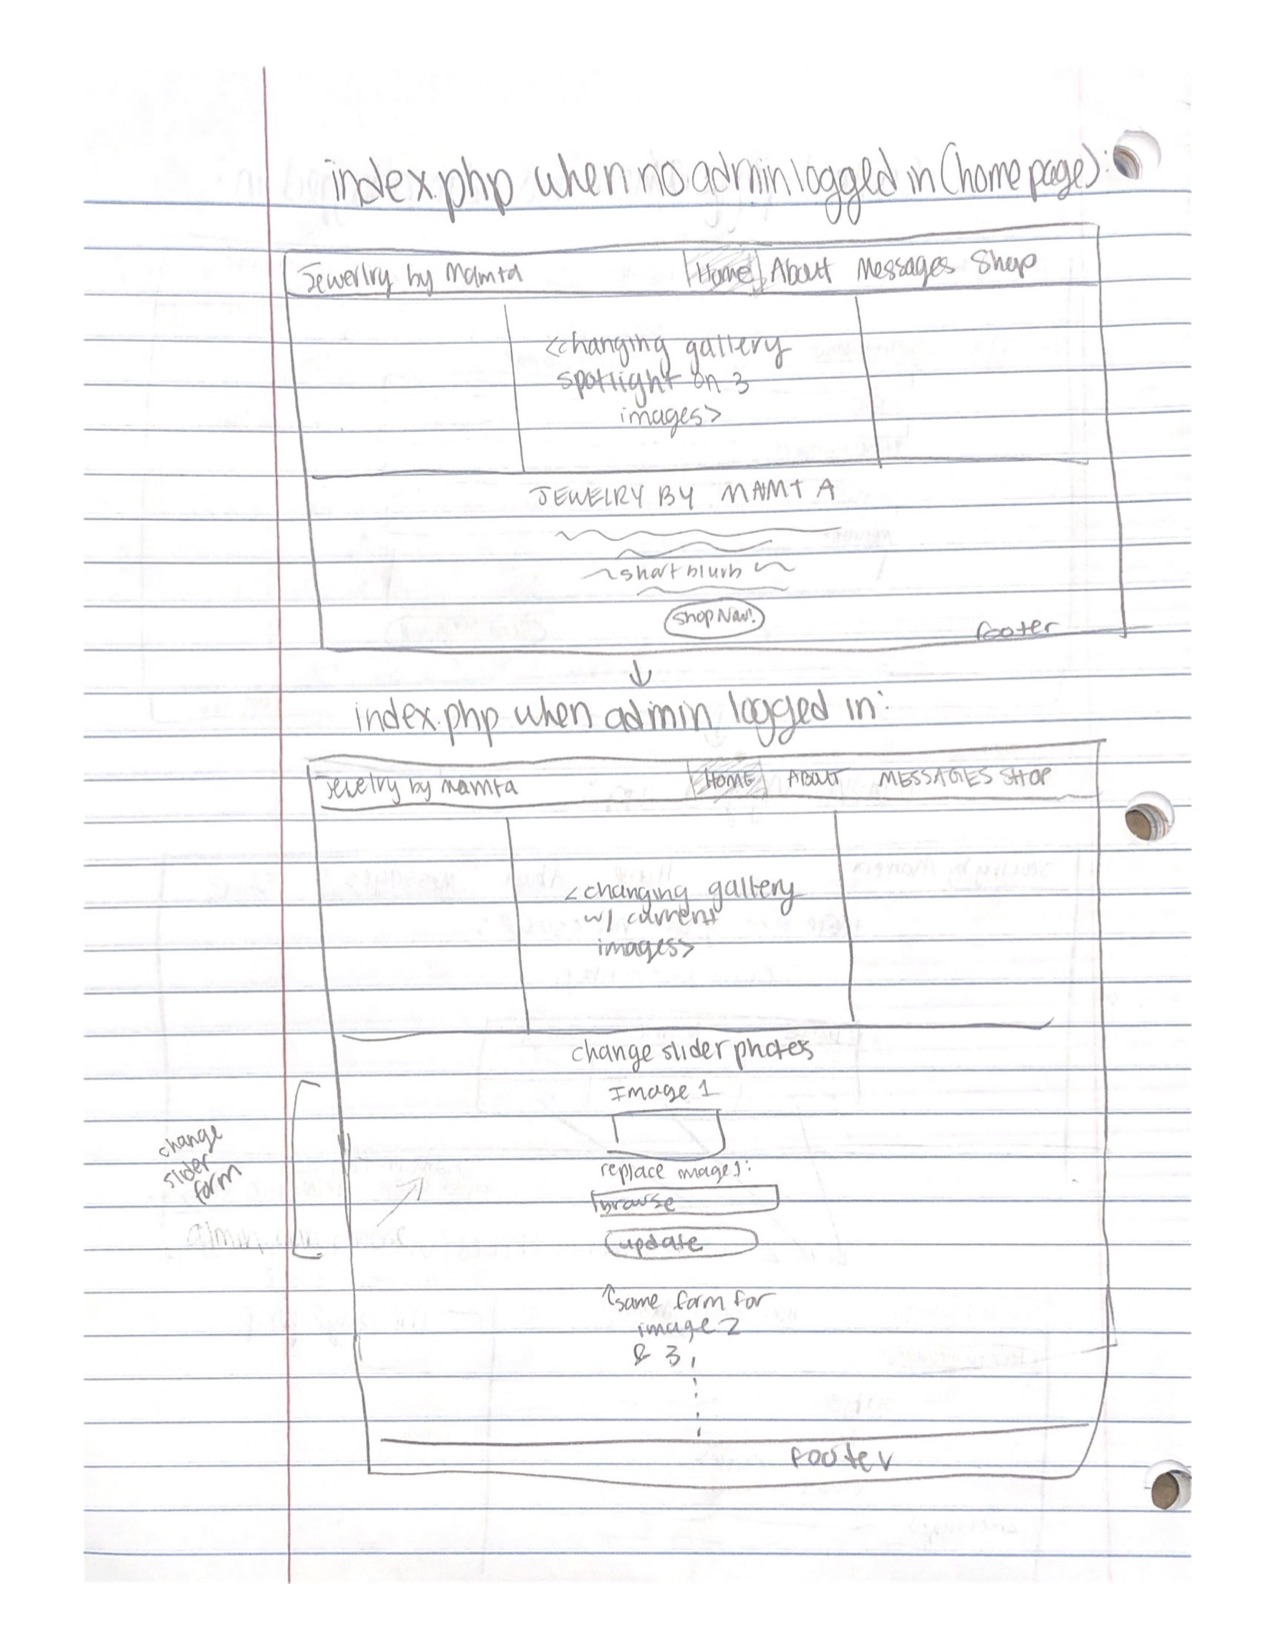 index.php when no admin logged in (home page):
Jewerlry by Mamta Home About Messages Shop
<changing gallery
spotlight on 3
images>
JEWELRY BY MAMTA
short blurb
Shop Now!
footer
index.php when admin logged in:
Jewelry by mamta HOME ABOUT MESSAGES SHOP
<changing gallery
w/ current
images>
change slider photos
Image 1
replace image 1:
browse
update
change
slider
form
same form for
image 2
& 3
footer